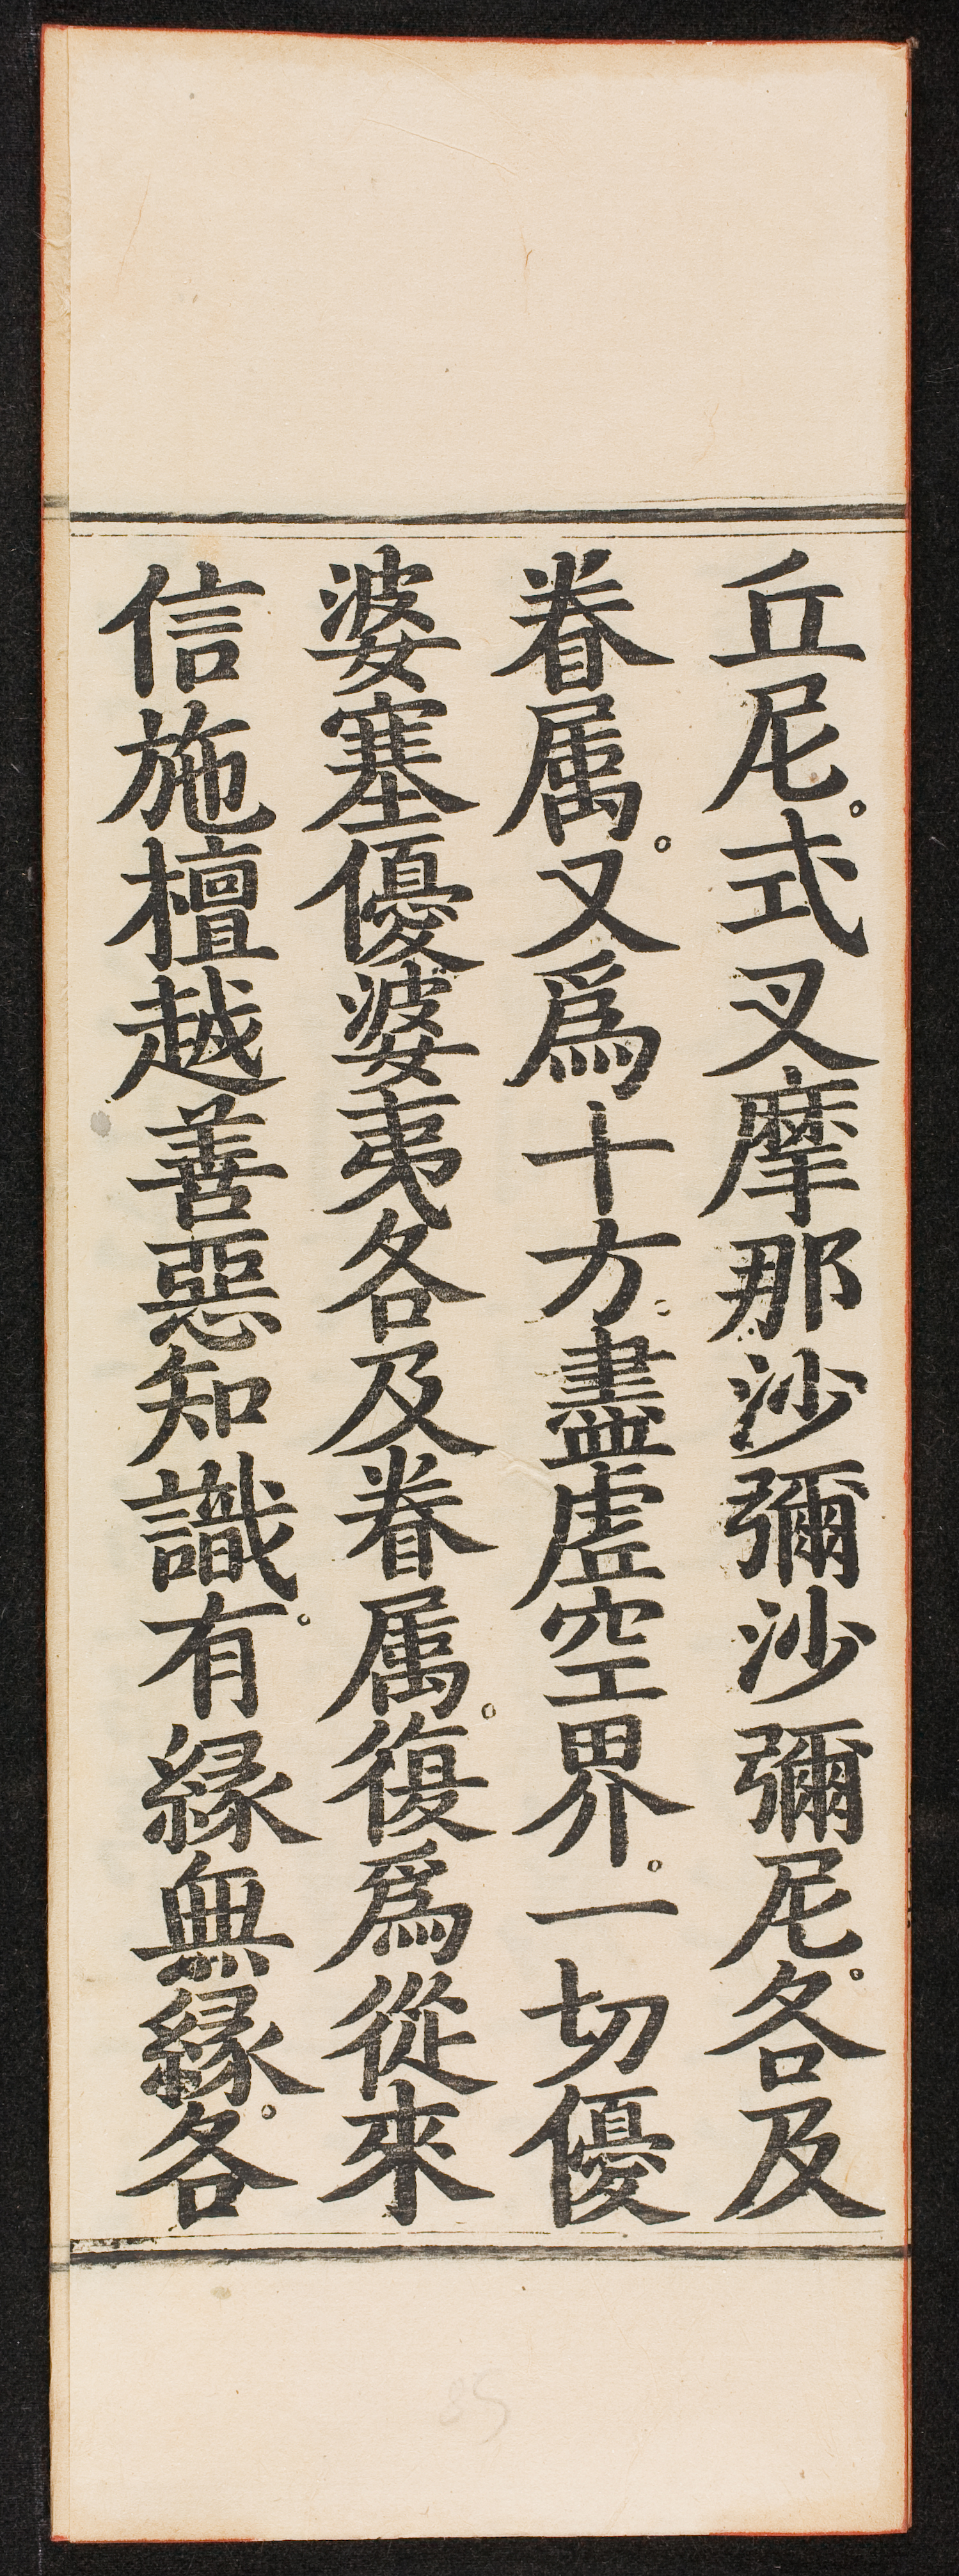 丘尼。式叉摩那沙彌沙彌尼。各及
眷属。又爲十方。盡虚空界。一切優
婆塞優婆夷各及眷属。復爲從來
信施檀越善惡知識。有緣無緣。各
35